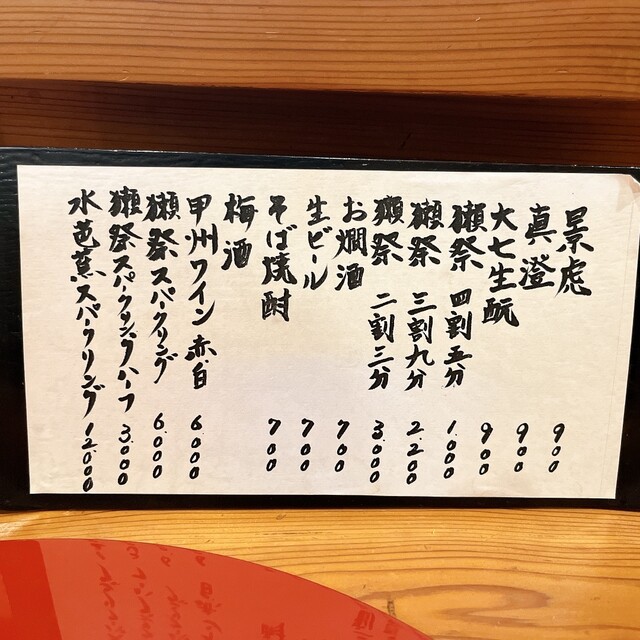 景虎 900
真澄 900
大七生酛 900
獺祭 四割五分 1.000
獺祭 三割九分 2.200
獺祭 二割三分 3.000
お燗酒 700
生ビール 700
そば焼酎 700
梅酒
甲州ワイン 赤白 6.000
獺祭スパークリング 6.000
獺祭スパークリングハーフ 3.000
水芭蕉スパークリング 12.000